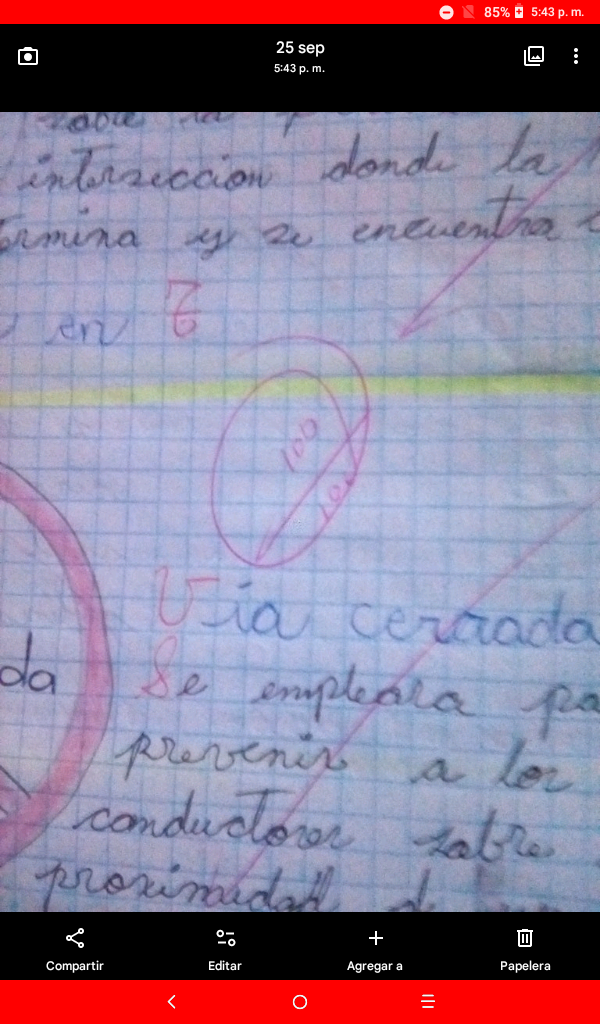 85% 5:43 p. m.
25 sep
5:43 p. m.
sobre la
interseccion donde la
ermina y se encuentra
en T
100
100
Via cerrada
da
Se empleara pa
prevenir a los
conductores sobre
proximidad d
Compartir Editar Agregar a Papelera